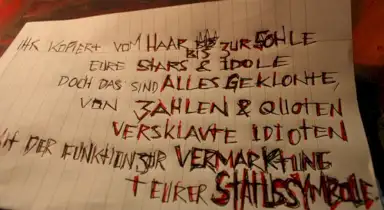 IHR KOPIERT VOM HAAR BIS ZUR SOHLE
EURE STARS & IDOLE
DOCH DAS SIND ALLES GEKLONTE,
VON ZAHLEN & QUOTEN
VERSKLAVTE IDIOTEN
MIT DER FUNKTION ZUR VERMARKTUNG
+ EURER STATUSSYMBOLE